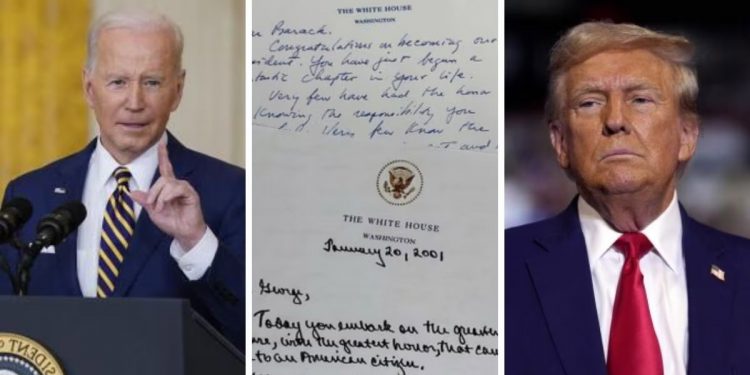 THE WHITE HOUSE
WASHINGTON
Barack.
Congratulations on becoming our
sident. You have just begun a
tastic chapter in your life.
Very few have had the honor
Knowing the responsibility you
Very few know the
THE WHITE HOUSE
WASHINGTON
January 20, 2001
George,
Today you embark on the greatest
ure, with the greatest honor, that can
to an American citizen.
SIDENT O